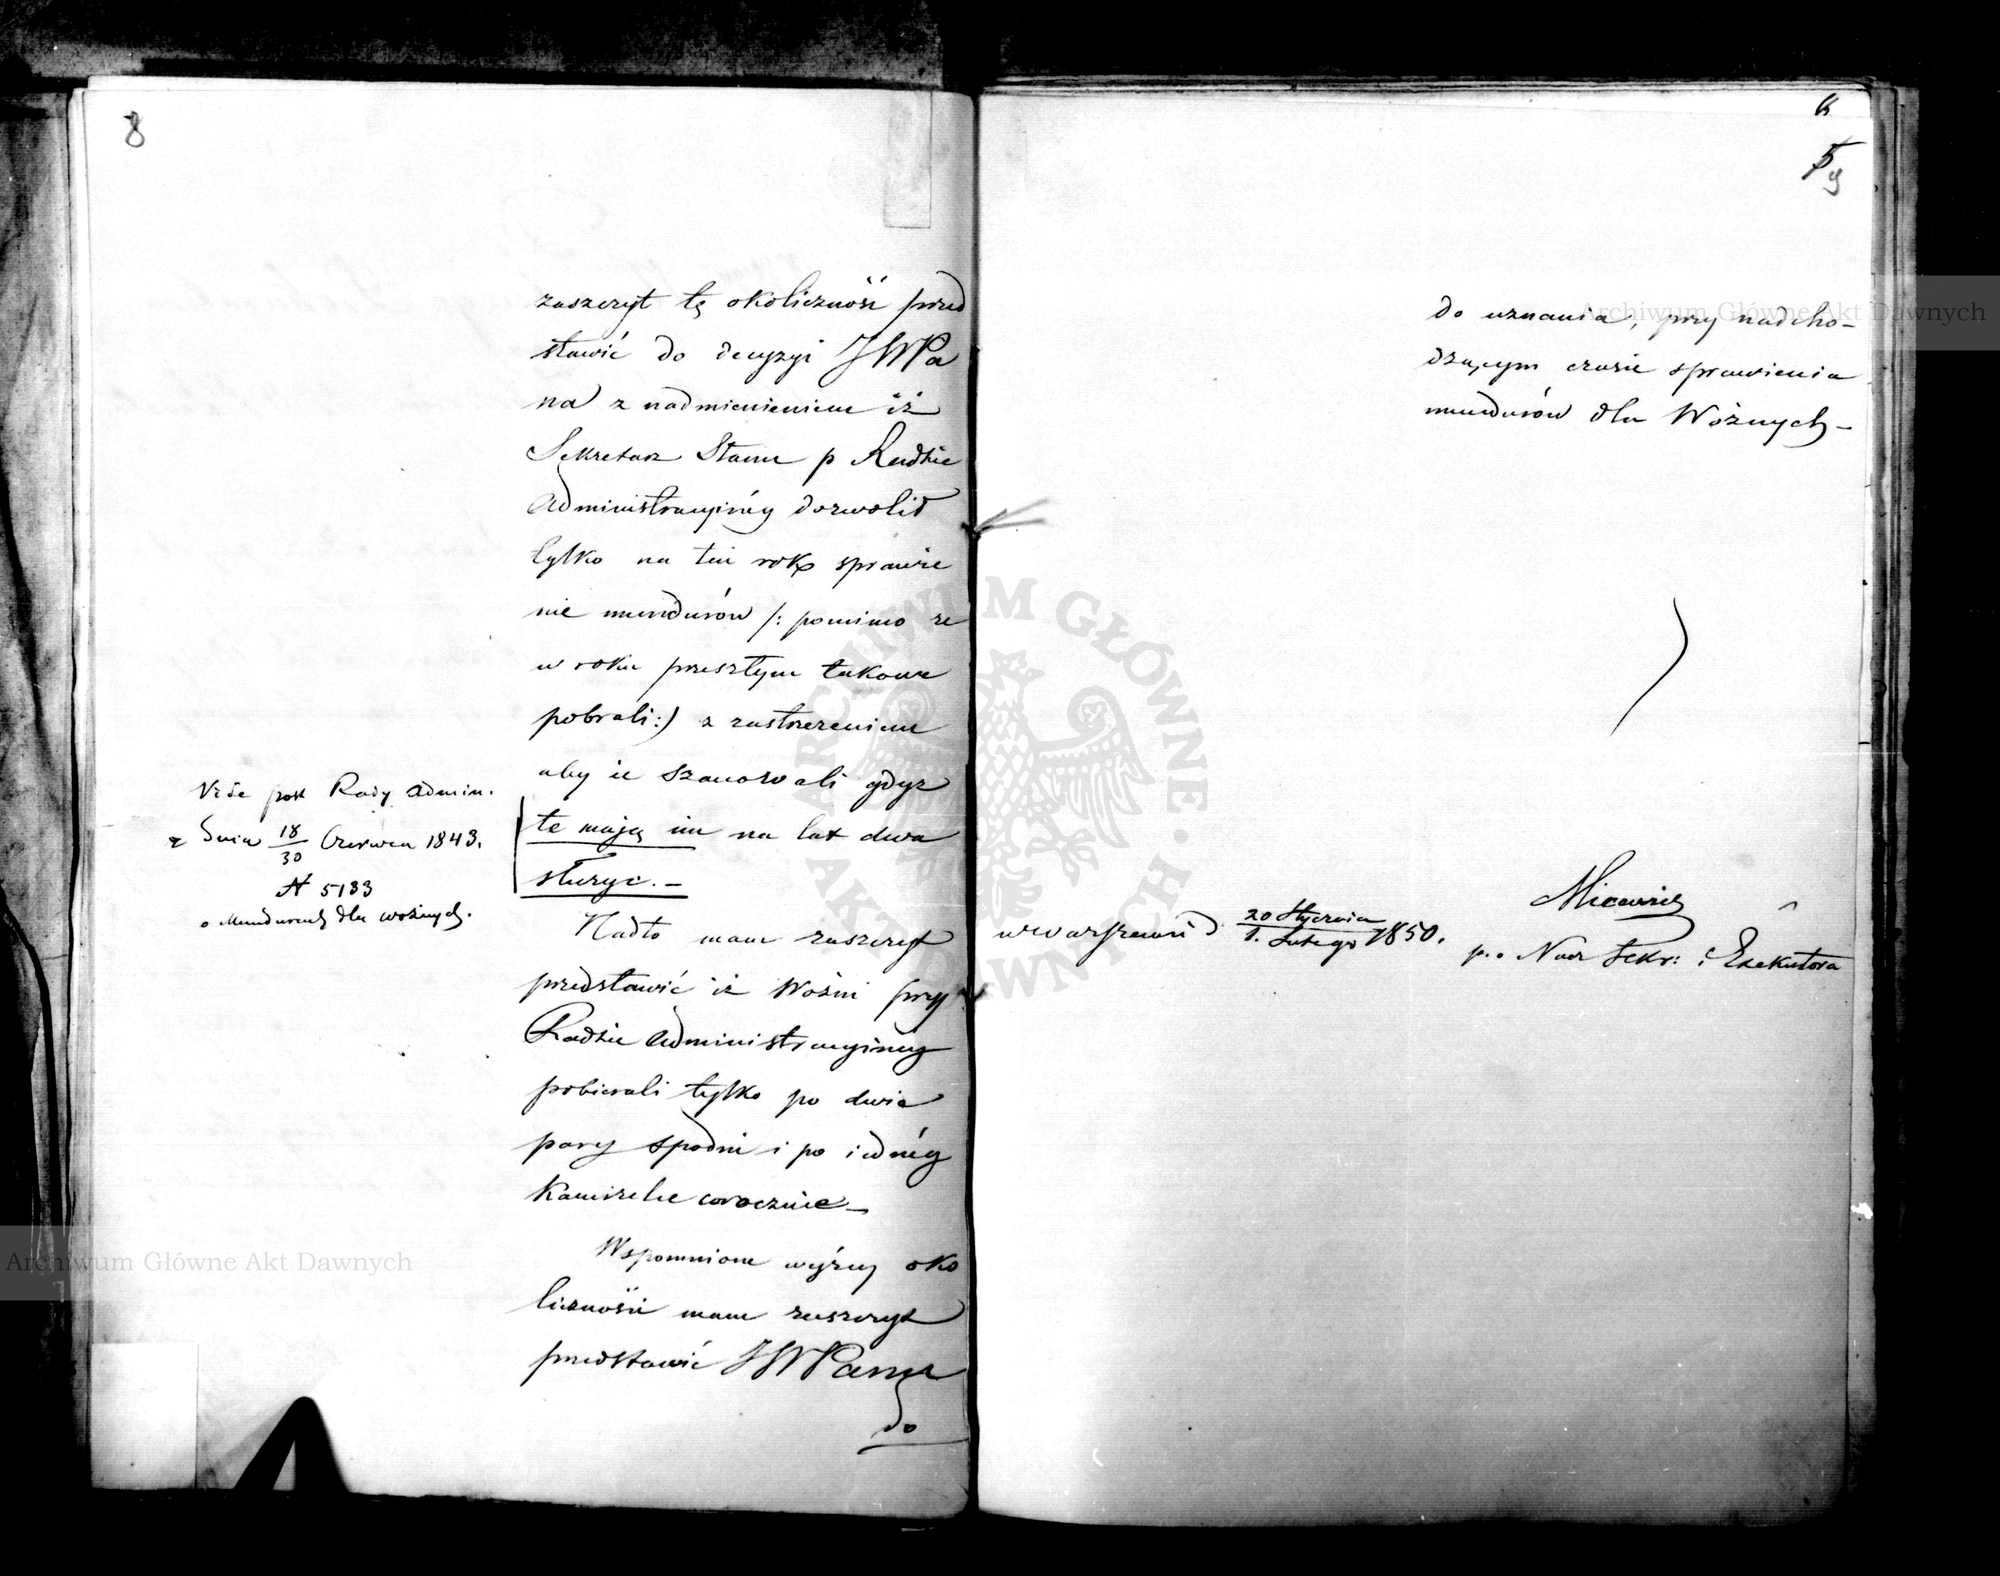 8
zaszczyt tę okoliczność przed
stawić do decyzyi JWPa
na z nadmienieniem iż
Sekretarz Stanu p Radzie
Administracyinéy dozwolił
tylko na ten rok sprawie
nie mundurów /: pomimo ze
w roku przeszłym takowe
pobrali :/ z zastrzeżeniem
aby ie szanowali gdyz
te mają im na lat dwa
służyć. –
Nadto mam zaszczyt
przedstawić iż Woźni przy
Radzie Administracyinéy
pobierali tylko po dwie
pary spodni i po iednéy
Kamizelce corocznie –
Wspomnione wyżéy oko
liczności mam zaszczyt
przedstawić JWPanu
do
Vide post Rady Admin.
z Dnia 18/30 Czerwca 1843.
N 5133
o Mundurach dla woźnych.
5
9
do uznania, przy nadcho-
dzącym czasie sprawienia
mundurów dla Woźnych –
w Warszawie d 20 Stycznia/1. Lutego 1850.
p. o Nacz Sekr: i Exekutora
Archiwum Główne Akt Dawnych
Archiwum Główne Akt Dawnych
ARCHIWUM GŁÓWNE AKT DAWNYCH